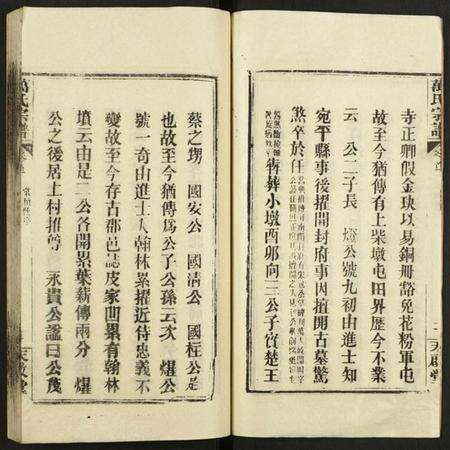 寺正卿假金玦以易銅冊豁免花粉軍屯
故至今猶傳有上柴墩屯田界歷今不業
云 公二子長 燈公號九初由進士知
宛平縣事後擢開封府事因擅開古墓驚
煞卒於任
犇葬小墩酉卯向二公子寳楚王
蔡之壻 國安公 國清公 國柱公是
也故至今猶傳為公子公孫云次 燿公
號一奇由進士入翰林累擢近侍忠義不
變故至今存古部邑誌皮家凹累有翰林
墳云由是二公各開累葉薪傳兩分 燿
公之後居上村推尊 永貴公謐曰公茂
萬氏宗譜
萬氏宗譜